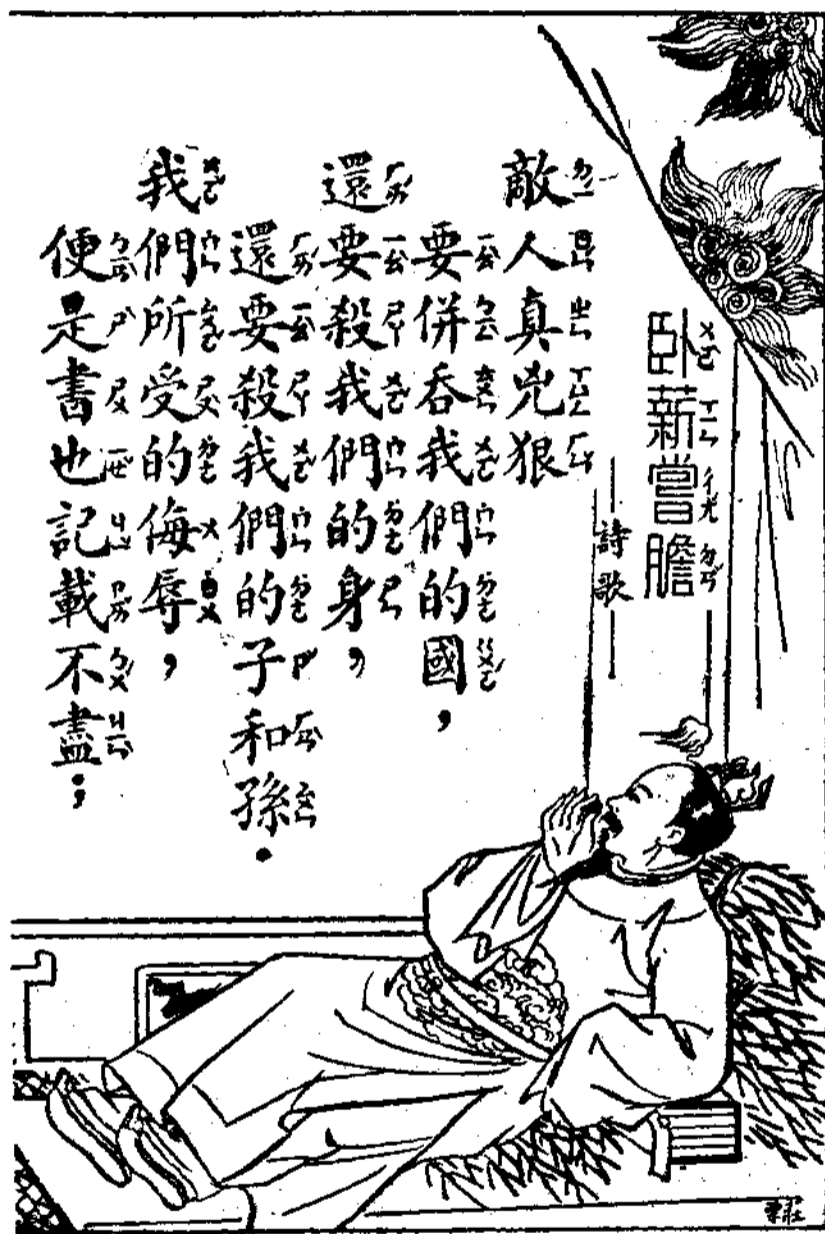 臥薪嘗膽
ㄨㄛˋ ㄒㄧㄣ ㄔㄤˊ ㄉㄢˇ
詩歌
敵人真兇狠
要併吞我們的國，
還要殺我們的身，
還要殺我們的子和孫．
我們所受的侮辱，
便是書也記載不盡；